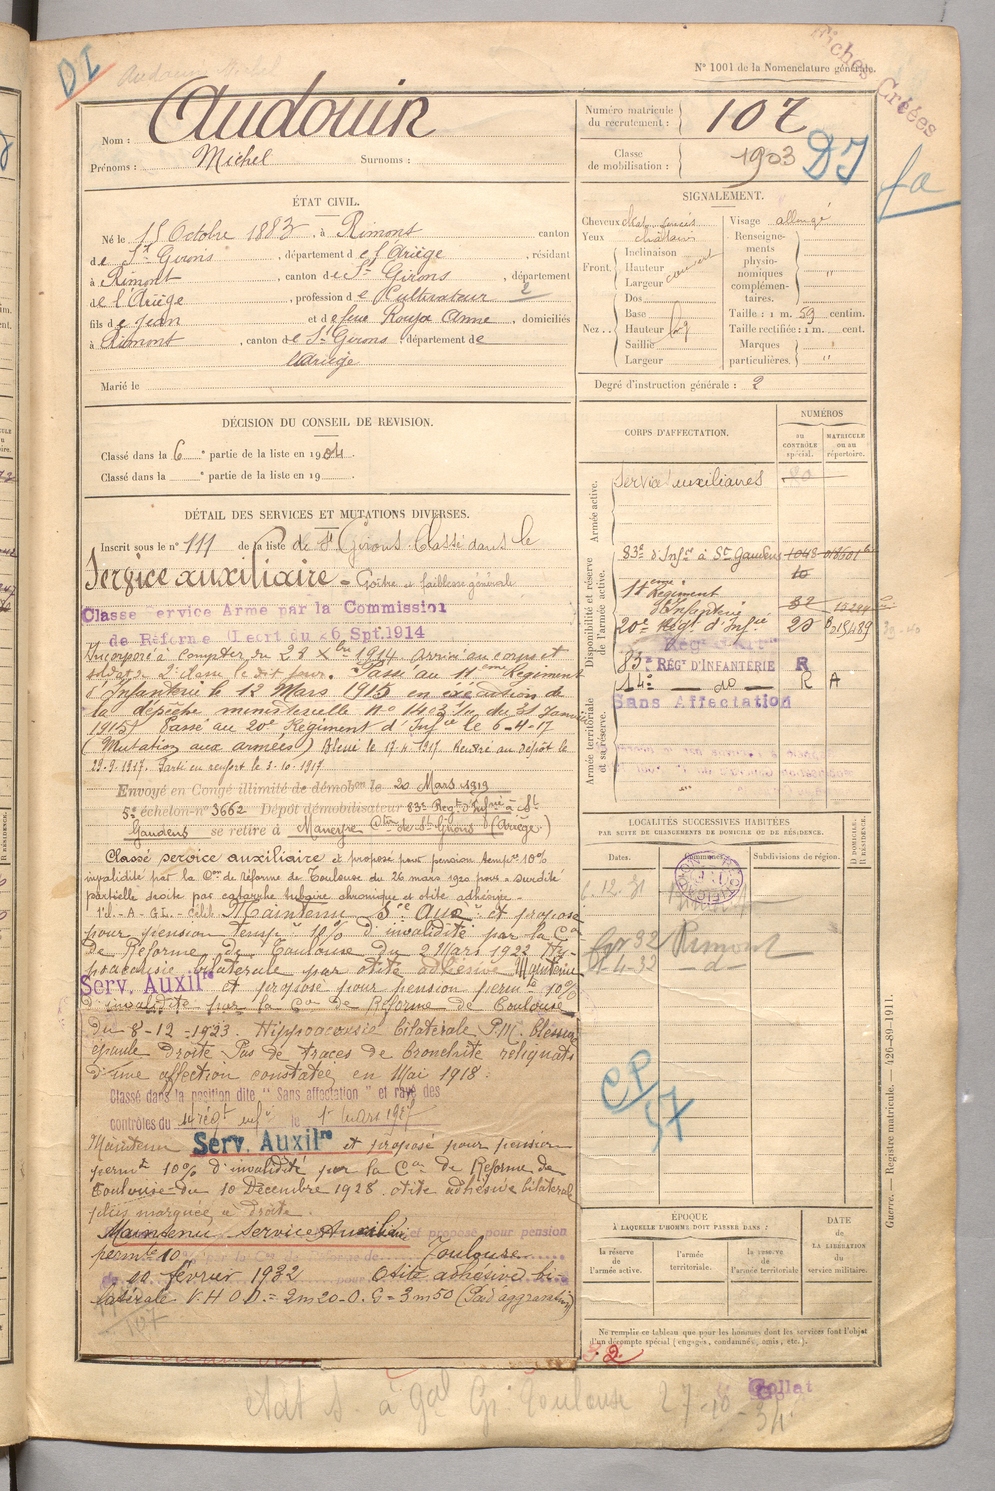 DI
Audouin Michel
N° 1001 de la Nomenclature générale.
Fiches Créées
Nom : Audouin
Prénoms : Michel Surnoms :
Numéro matricule du recrutement : 107
Classe de mobilisation : 1903
DI
fa
ÉTAT CIVIL.
Né le 15 Octobre 1883, à Rimont canton
de St Girons, département de l'Ariège, résidant
à Rimont, canton de St Girons, département
de l'Ariège, profession de Cultivateur 2
fils de Jean et de feue Rouja Anne, domiciliés
à Rimont, canton de St Girons, département de
l'Ariège
Marié le
SIGNALEMENT.
Cheveux chat. foncés Visage allongé
Yeux châtain
Front. Inclinaison
Hauteur couvert
Largeur
Nez.. Dos
Base
Hauteur
Saillie
Largeur
Renseignements physionomiques complémentaires. "
Taille : 1 m. 59 centim.
Taille rectifiée : 1 m. cent.
Marques particulières. "
Degré d'instruction générale : 2
DÉCISION DU CONSEIL DE REVISION.
Classé dans la 6e partie de la liste en 1904.
Classé dans la e partie de la liste en 19
DÉTAIL DES SERVICES ET MUTATIONS DIVERSES.
Inscrit sous le n° 111 de la liste de St Girons Classé dans le
Service auxiliaire - Goitre et faiblesse générale
Classé Service Armé par la Commission
de Réforme (Decrt du 26 Spt.1914
Incorporé à compter du 28 Xbre 1914. Arrivé au corps et
soldat de 2e classe le dit jour. Passé au 11eme Régiment
d'Infanterie le 12 Mars 1915 en exécution de
la dépêche ministérielle n° 1403 1/11 du 31 Janvier
1915) Passé au 20e Régiment d'Infie le 6-4-17
(Mutation aux armées) Blessé le 17-4-1917. Rentré au dépôt le
29-9-1917. Parti en renfort le 3-10-1917
Envoyé en Congé illimité de démobon le 20 Mars 1919
5e échelon n° 3662 Dépôt démobilisateur 83e Régt d'Infrie à St
Gaudens se retire à Ctn de St Girons (Ariège.)
Classé service auxiliaire et proposé pour pension tempre 10%
invalidité par la Con de Réforme de Toulouse du 26 mars 1920 pour "surdité
partielle droite par catarrhe tubaire chronique et otite adhésive -
Maintenu Sce Auxre et proposé
pour pension tempre 10% d'invalidité par la Con
de Réforme de Toulouse du 2 Mars 1922 Hy-
poacousie bilatérale par otite adhésive Maintenu
Serv. Auxilre et proposé pour pension permte 10%
d'invalidité par la Con de Réforme de Toulouse
du 8-12-1923. Hippoacousie bilatérale P.M. blessure
épaule droite Pas de traces de bronchite reliquats
d'une affection constatée en Mai 1918.
Classé dans la position dite "Sans affectation" et rayé des
contrôles du 14 régt infie le 1er Mars 1927
Maintenu Serv. Auxilre et proposé pour pension
permte 10% d'invalidité par la Con de Réforme de
Toulouse du 10 Décembre 1928. otite adhésive bilatérale
plus marquée à droite.
Maintenu Service Auxiliaire et proposé pour pension
permte 10 par la Con de Réforme de Toulouse
du 10 février 1932 pour Otite adhésive bi-
latérale V.H O D. = 2m20 - O. G = 3m50 (Pas d'aggravation)
107
CORPS D'AFFECTATION.
NUMÉROS
au CONTRÔLE spécial.
MATRICULE ou au répertoire.
Armée active.
Services auxiliaires
Disponibilité et réserve de l'armée active.
83e d'Infie à St Gaudens 1048
11eme Régiment d'Infanterie 32
20e Régt d'Infie
83e RÉGt D'INFANTERIE R
14e — do — R A
Sans Affectation
Armée territoriale et sa réserve.
LOCALITÉS SUCCESSIVES HABITÉES
PAR SUITE DE CHANGEMENTS DE DOMICILE OU DE RÉSIDENCE.
Dates. Communes. Subdivisions de région. D DOMICILE. R RÉSIDENCE.
Rimont
4-32 - d -
CP
57
ÉPOQUE
À LAQUELLE L'HOMME DOIT PASSER DANS :
la réserve de l'armée active.
l'armée territoriale.
la réserve de l'armée territoriale
DATE DE LA LIBÉRATION du service militaire.
Ne remplir ce tableau que pour les hommes dont les services font l'objet
d'un décompte spécial (engagés, condamnés, omis, etc.).
2
Guerre. — Registre matricule. — 426-89-1911.
Collat
état s. à gal Gi Toulouse 27-10-34